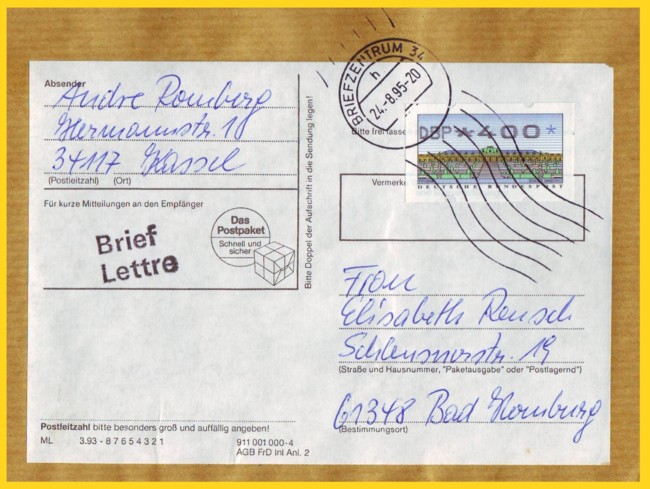 Absender
Andre Romberg
Hermannstr. 10
34117 Kassel
(Postleitzahl) (Ort)
Für kurze Mitteilungen an den Empfänger
Brief
Lettre
Das
Postpaket
Schnell und
sicher
Bitte Doppel der Aufschrift in die Sendung legen!
BRIEFZENTRUM 34
h
24.-8.95-20
Bitte frei
DBP *400*
DEUTSCHE BUNDESPOST
Vermerke
Frau
Elisabeth Rensch
19
(Straße und Hausnummer, "Paketausgabe" oder "Postlagernd")
61348 Bad Homburg
(Bestimmungsort)
Postleitzahl bitte besonders groß und auffällig angeben!
ML 3.93 - 8 7 6 5 4 3 2 1 911 001 000-4
AGB FrD Inl Anl. 2